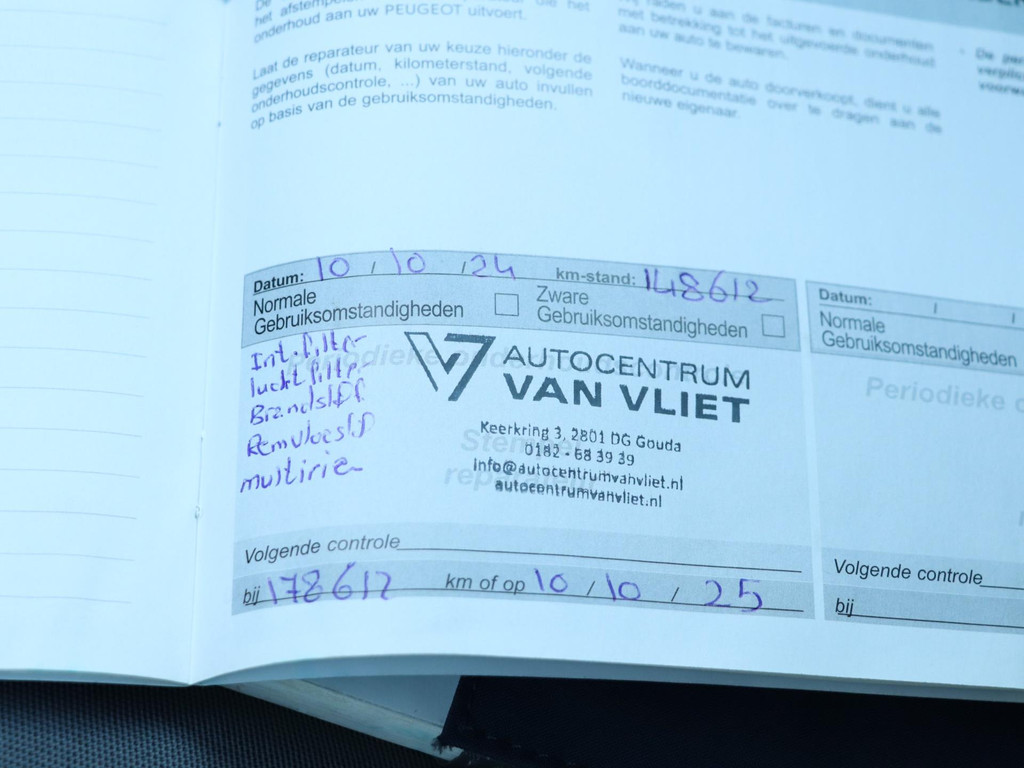 het
onderhoud aan uw PEUGEOT uitvoert.
Laat de reparateur van uw keuze hieronder de
gegevens (datum, kilometerstand, volgende
onderhoudscontrole, ...) van uw auto invullen
op basis van de gebruiksomstandigheden.
raden u aan de facturen en documenten
met betrekking tot het uitgevoerde onderhoud
aan uw auto te bewaren.
Wanneer u de auto doorverkoopt, dient u alle
boorddocumentatie over te dragen aan de
nieuwe eigenaar.
Datum: 10 / 10 / 24 km-stand: 148612
Normale
Gebruiksomstandigheden
Zware
Gebruiksomstandigheden
Int. filter
lucht filter
Brandst.
Remvloeist.
multirie
AUTOCENTRUM
VAN VLIET
Keerkring 3, 2801 DG Gouda
0182 - 68 39 39
info@autocentrumvanvliet.nl
autocentrumvanvliet.nl
Volgende controle
bij 178612 km of op 10 / 10 / 25
Datum: / /
Normale
Gebruiksomstandigheden
Periodieke
Volgende controle
bij